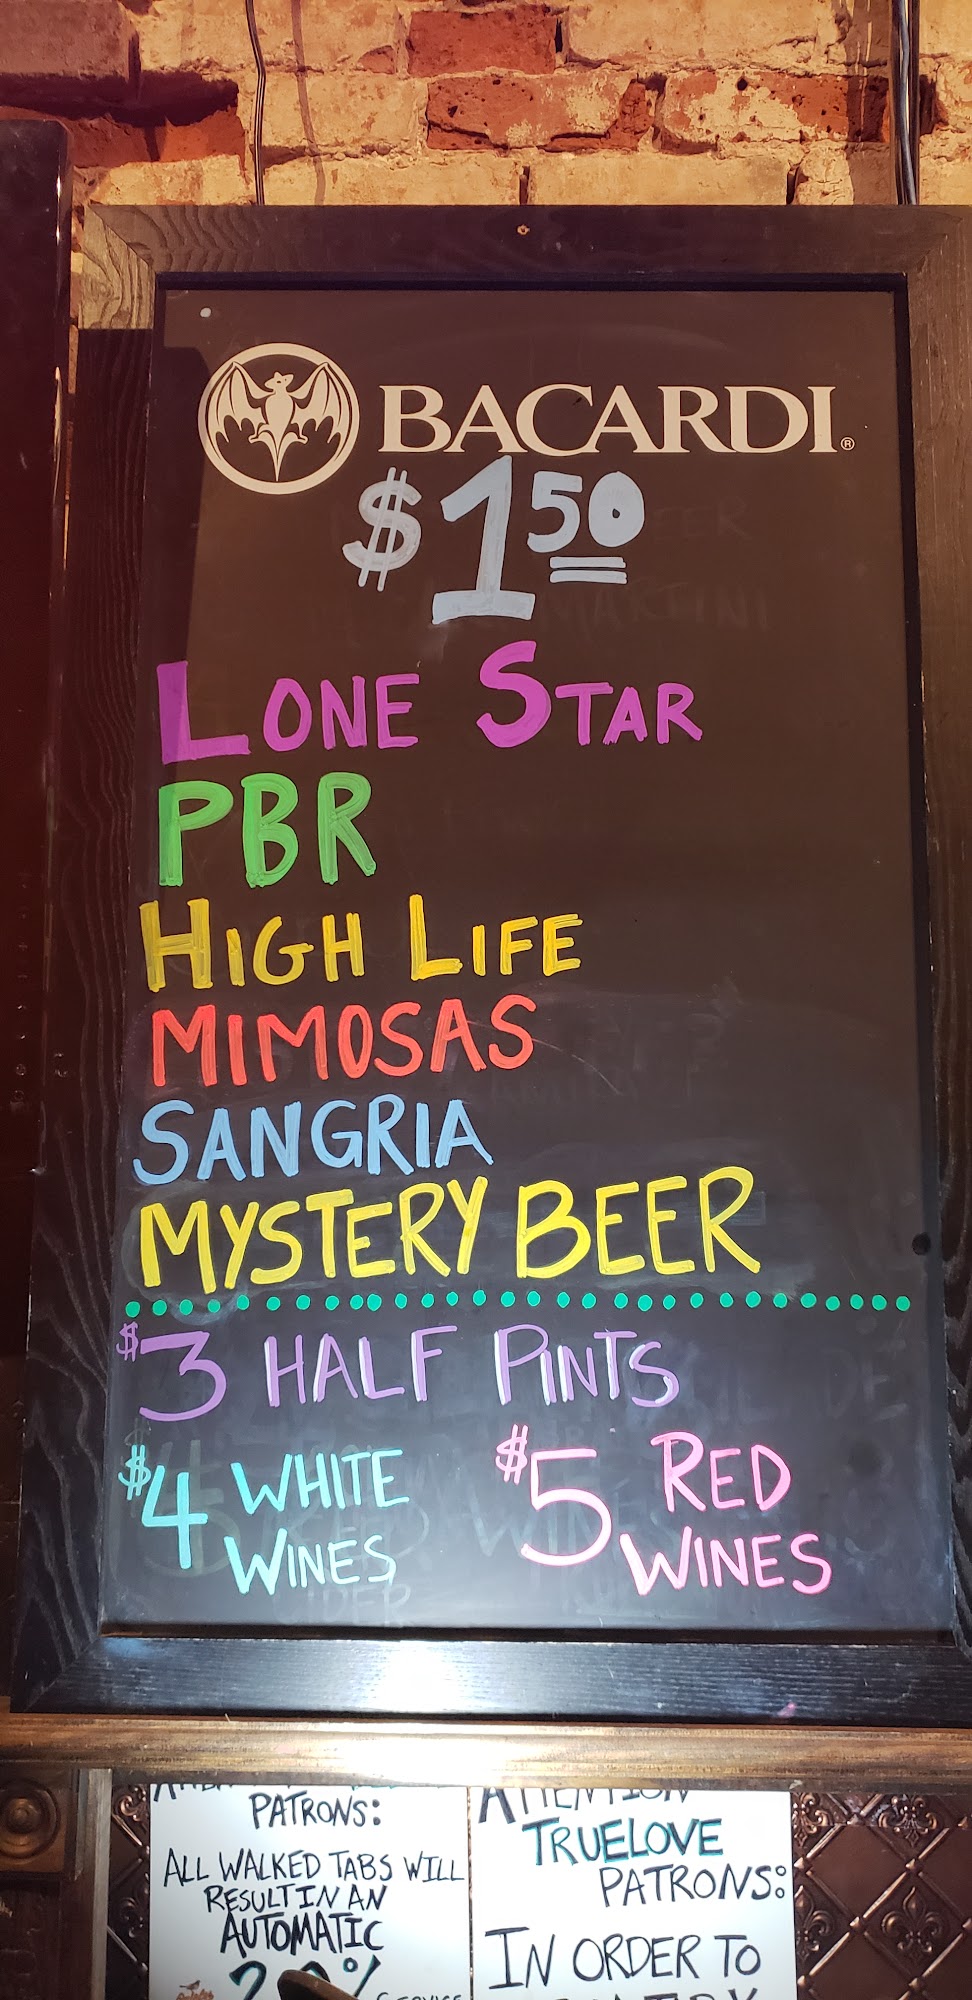 BACARDI®
$1.50
LONE STAR
PBR
HIGH LIFE
MIMOSAS
SANGRIA
MYSTERY BEER
$3 HALF PINTS
$4 WHITE WINES
$5 RED WINES
PATRONS:
ALL WALKED TABS WILL
RESULT IN AN
AUTOMATIC
20%
SERVICE
ATTENTION
TRUELOVE
PATRONS:
IN ORDER TO